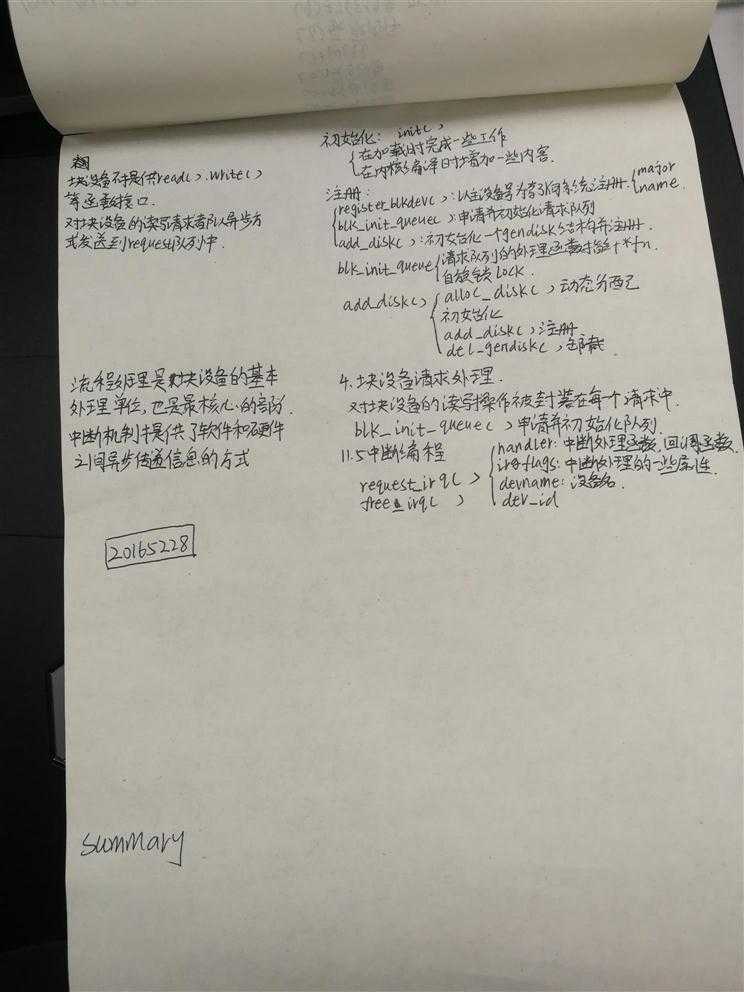 块设备不提供read()、write()
等函数接口.
对块设备的读写请求都以异步方
式发送到request队列中.
流程处理是对块设备的基本
处理单位,也是最核心的部分.
中断机制提供了软件和硬件
之间异步传递信息的方式
20165228
初始化: init()
在加载时完成一些工作
在内核编译时增加一些内容.
注册:
register_blkdev(): 以主设备号为索引向系统注册. major
name.
blk_init_queue()申请并初始化请求队列
add_disk(): 初始化一个gendisk结构并注册.
blk_init_queue 请求队列的处理函数指针*fn.
自旋锁lock.
add_disk() alloc_disk()动态分配
初始化
add_disk()注册
del_gendisk()卸载.
4.块设备请求处理.
对块设备的读写操作被封装在每一个请求中.
blk_init_queue()申请并初始化队列.
11.5中断编程
handler: 中断处理函数,回调函数.
irqflags: 中断处理的一些属性.
request_irq() devname: 设备名.
free_irq() dev_id
summary